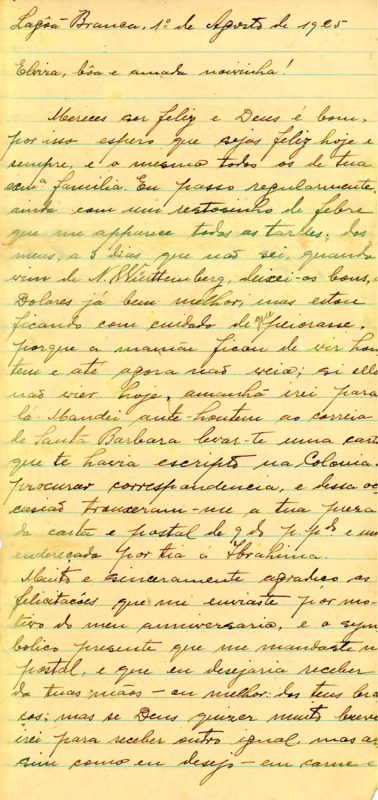 Lagôa Branca, 1º de Agosto de 1925
Elvira, bôa e amada noivinha!
Mereces ser feliz e Deus é bom,
por isso espero que sejas feliz hoje e
sempre, e o mesmo todos os de tua
exmª familia. Eu passo regularmente,
ainda com um restosinho de febre
que me apparece todas as tardes; dos
meus, a 3 dias que não sei, quando
vim de N. Württemberg, deixei-os bons, e
Dolores já bem melhor, mas estou
ficando com cuidado de que peiorasse,
porque a mamãe ficou de vir hon-
tem e até agora não veio; si ella
não vier hoje, amanhã irei para
lá. Mandei ante-hontem ao correio
de Santa Barbara levar-te uma carta
que te havia escripto na Colonia e
procurar correspondencia, e dessa oc-
casião trouxeram-me a tua preza-
da carta e postal de 9 do p.pdo. e um
endereçada por tia á Ibrahima.
Muito e sinceramente agradeço as
felicitações que me enviaste por mo-
tivo do meu anniversario, e o sym-
bolico presente que me mandaste no
postal, e que eu desejaria receber
da tuas mãos - ou melhor: dos teus bra-
ços; mas se Deus quizer muito breve
irei para receber outro igual, mas as-
sim como eu desejo - em carne e